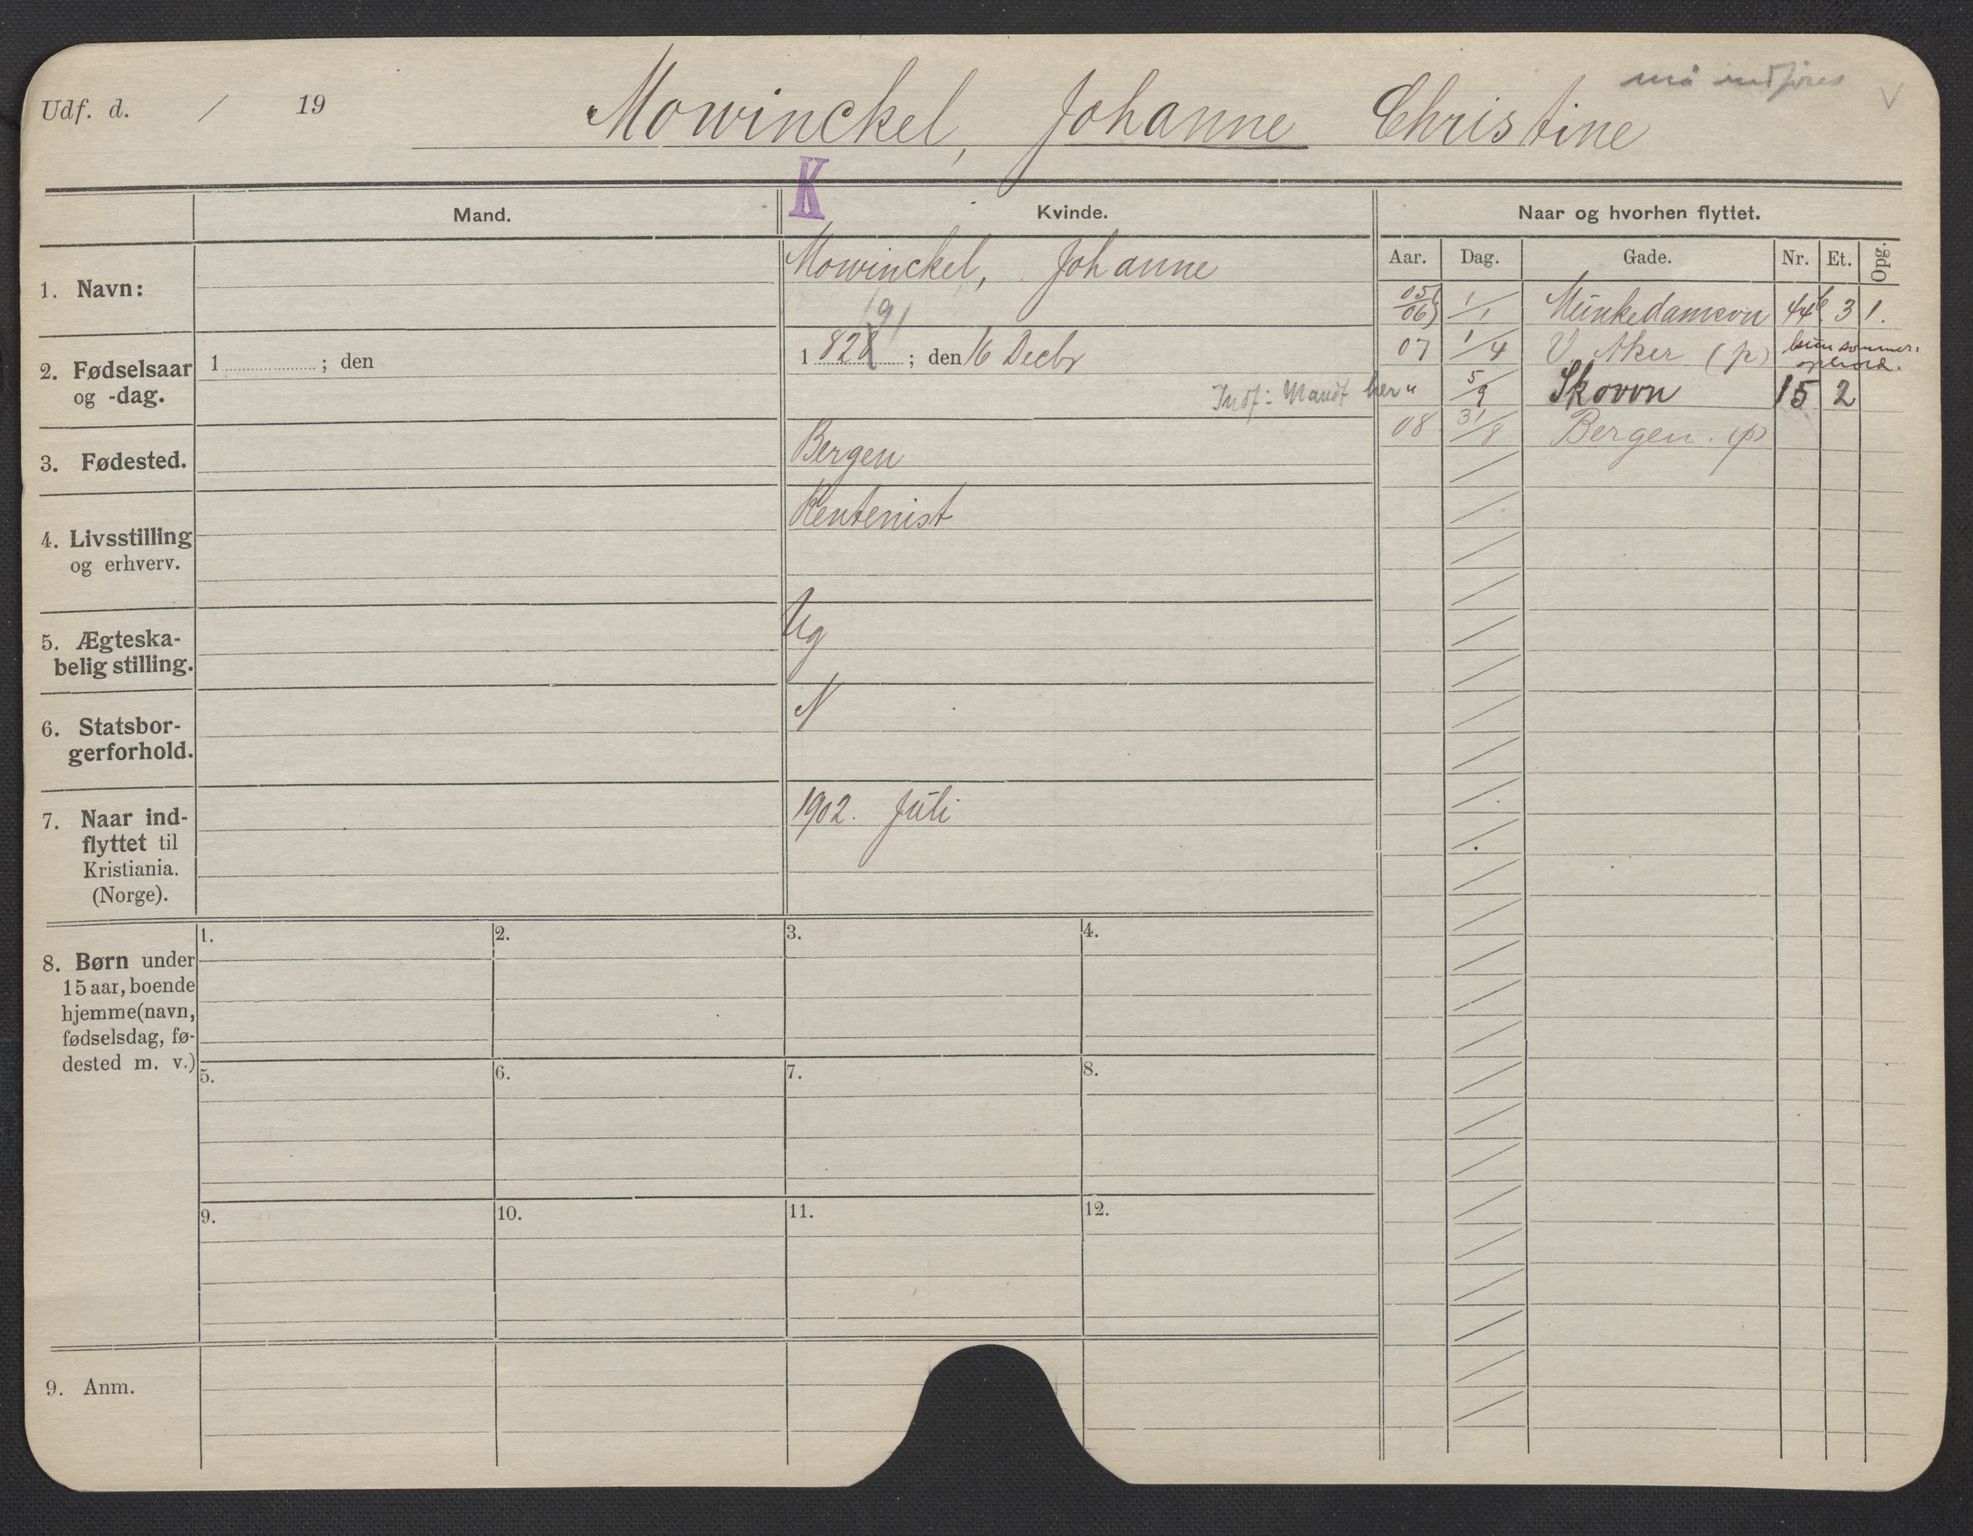 Udf. d. / 19
Mowinckel, Johanne Christine
må indføres V
K
Mand.
Kvinde.
Naar og hvorhen flyttet.
Aar. Dag. Gade. Nr. Et. Opg.
1. Navn:
Mowinckel, Johanne
2. Fødselsaar og -dag.
1 ; den
1 828 ; den 16 Decbr
Indf: Mandt her
3. Fødested.
Bergen
4. Livsstilling og erhverv.
Rentenist
5. Ægteska-
belig stilling.
Ug
6. Statsbor-
gerforhold.
N
7. Naar ind-
flyttet til
Kristiania.
(Norge).
1902. Juli
05/06) 1/1 Munkedamsvn 44b 3 1.
07 1/4 V. Aker (p) kun sommer-
ophold.
" 5/9 Skovvn 15 2
08 31/8 Bergen. (p)
8. Børn under
15 aar, boende
hjemme (navn,
fødselsdag, fø-
dested m. v.)
1. 2. 3. 4.
5. 6. 7. 8.
9. 10. 11. 12.
9. Anm.